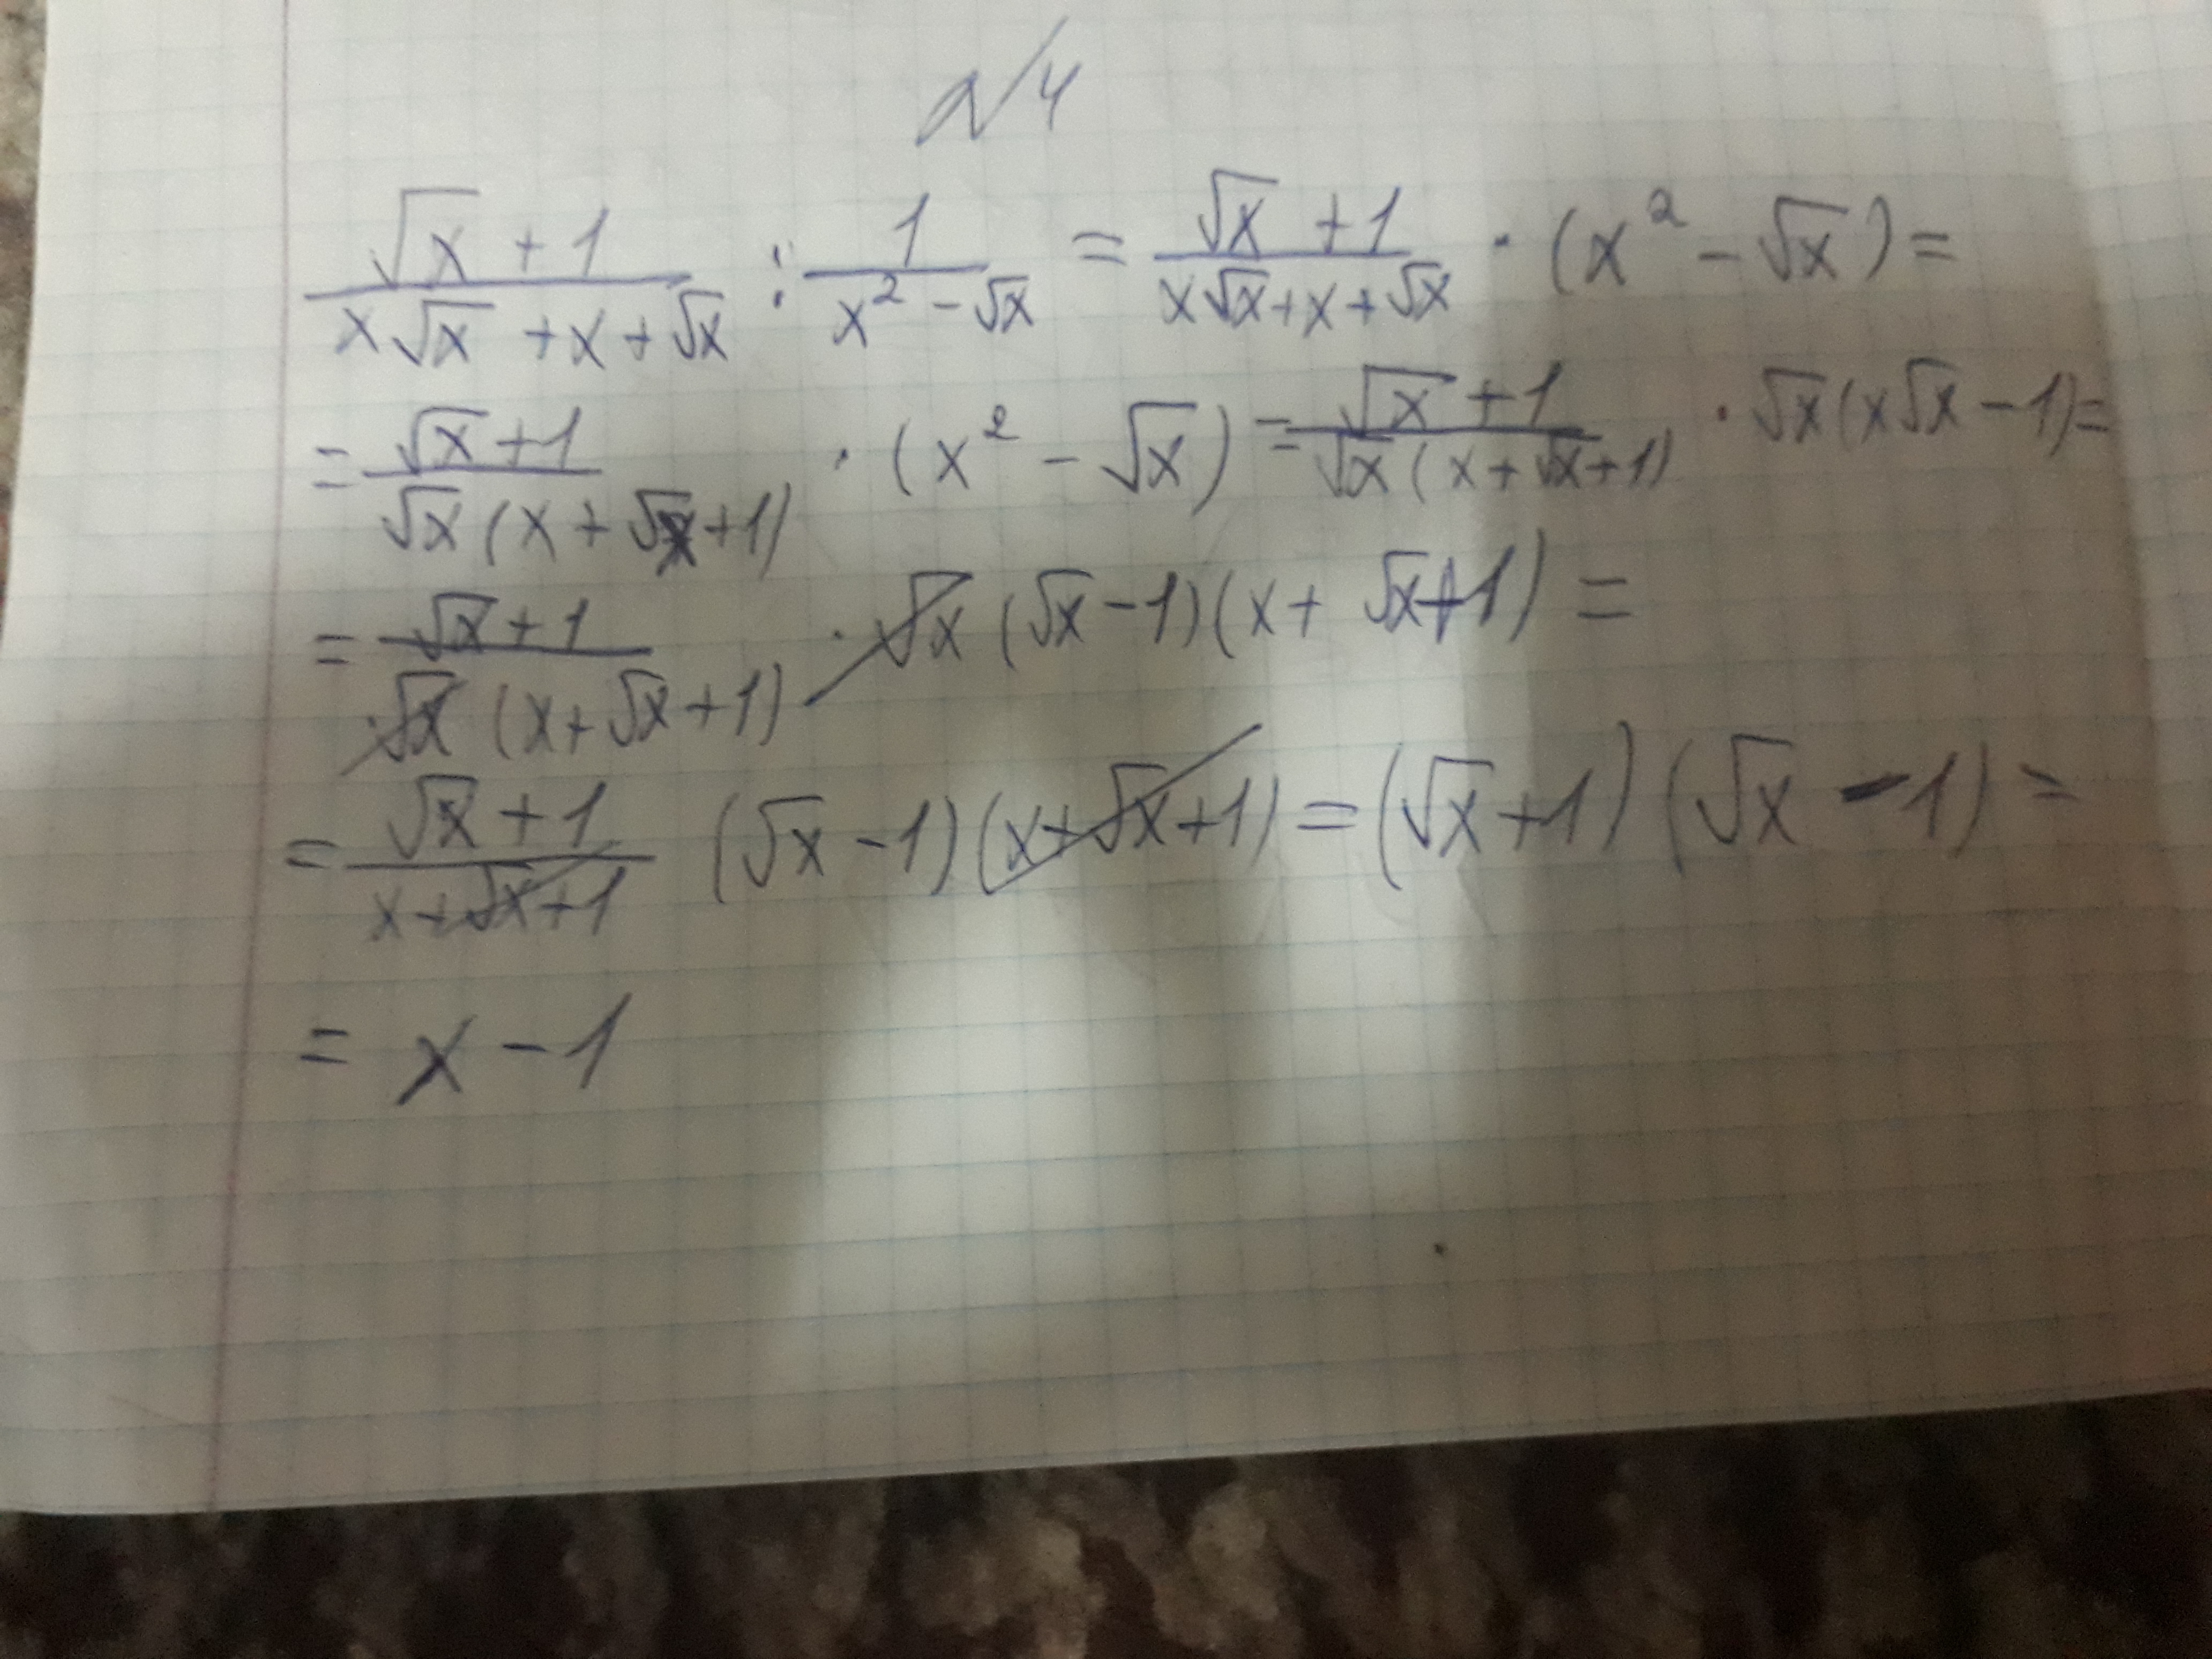 №4
(√x + 1)/(x√x + x + √x) : 1/(x² - √x) = (√x + 1)/(x√x + x + √x) · (x² - √x) =
= (√x + 1)/(√x (x + √x + 1)) · (x² - √x) = (√x + 1)/(√x (x + √x + 1)) · √x (x√x - 1) =
= (√x + 1)/(√x (x + √x + 1)) · √x (√x - 1)(x + √x + 1) =
= (√x + 1)/(x + √x + 1) (√x - 1)(x + √x + 1) = (√x + 1)(√x - 1) =
= x - 1